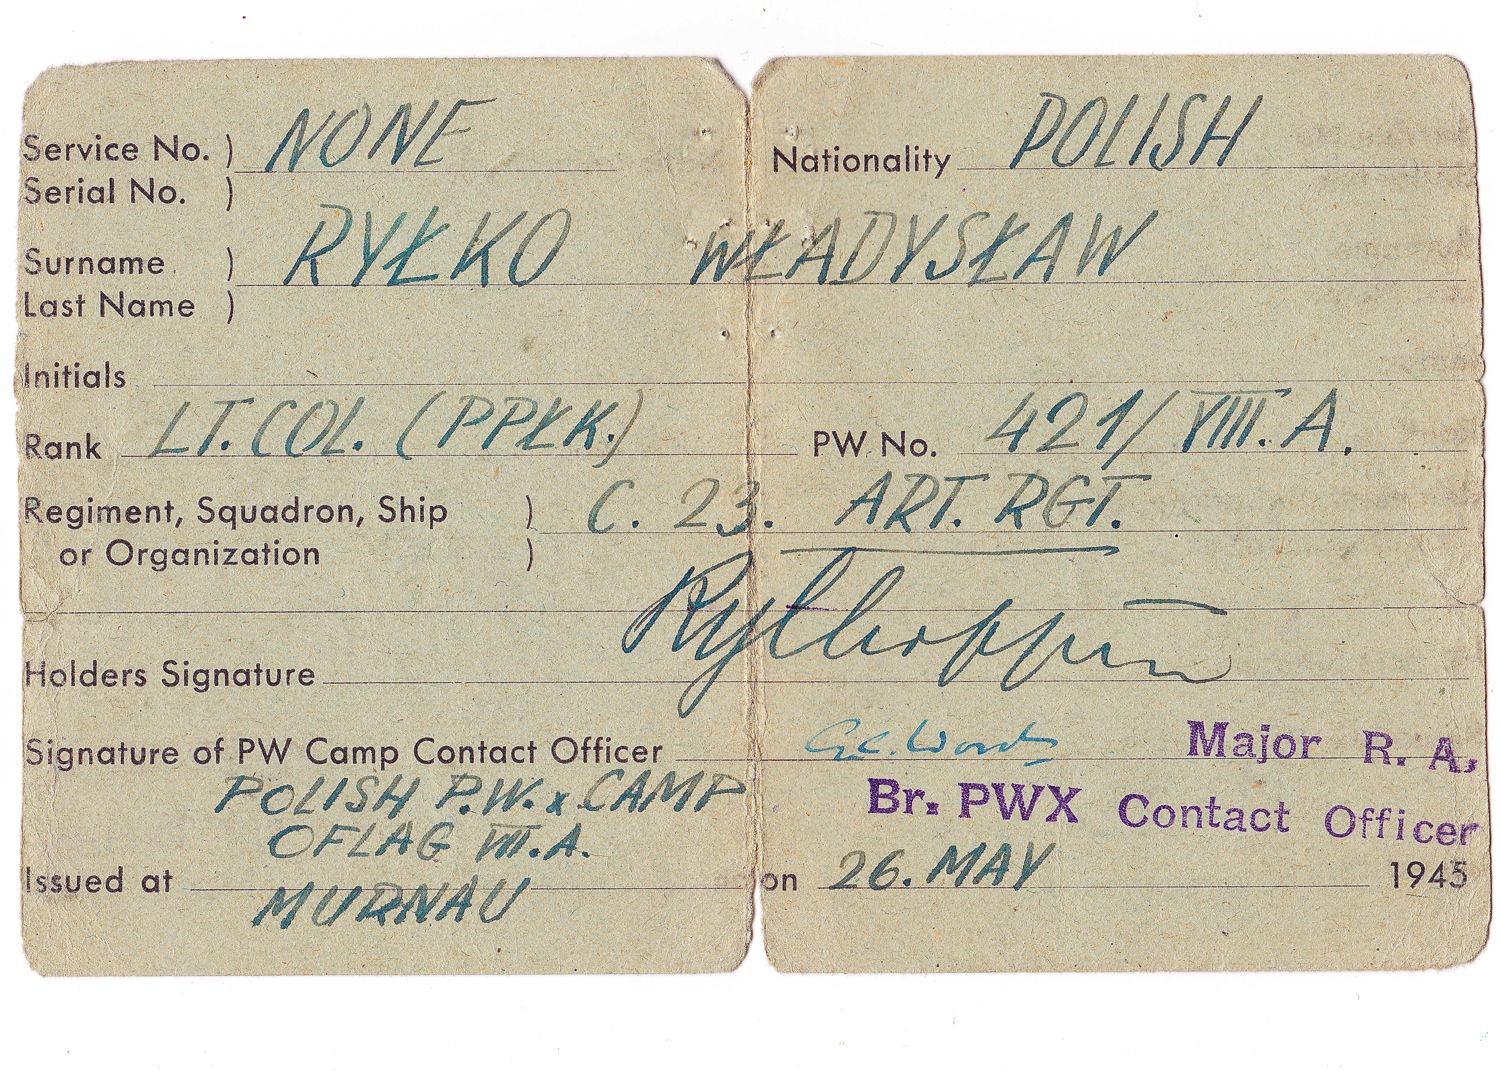 Service No. ) NONE Nationality POLISH
Serial No. )
Surname ) RYŁKO WŁADYSŁAW
Last Name )
Initials
Rank LT. COL. (PPŁK.) PW No. 421/VIII. A.
Regiment, Squadron, Ship ) C. 23. ART. RGT.
or Organization )
Holders Signature
Signature of PW Camp Contact Officer Major R. A,
POLISH P.W.x CAMP Br. PWX Contact Officer
OFLAG VII.A.
Issued at MURNAU on 26. MAY 1945